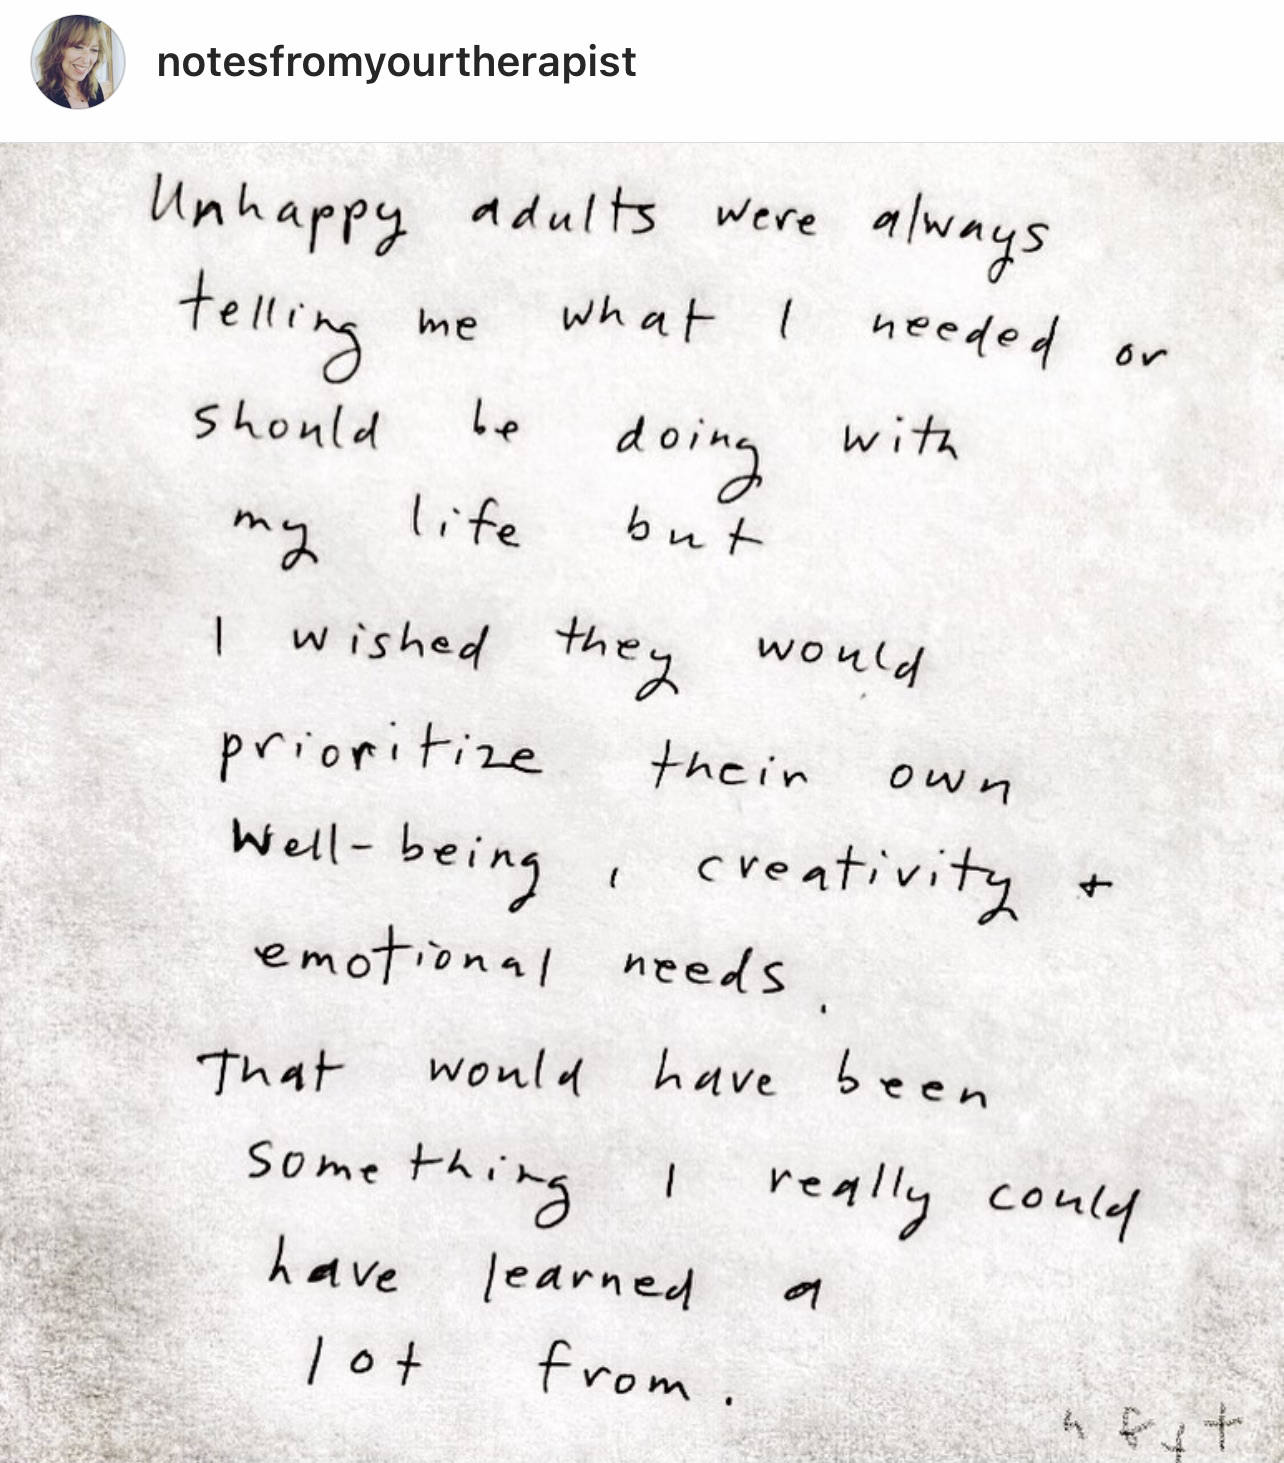 notesfromyourtherapist
Unhappy adults were always
telling me what I needed or
should be doing with
my life but
I wished they would
prioritize their own
Well-being, creativity +
emotional needs.
That would have been
something I really could
have learned a
lot from.
nfyt